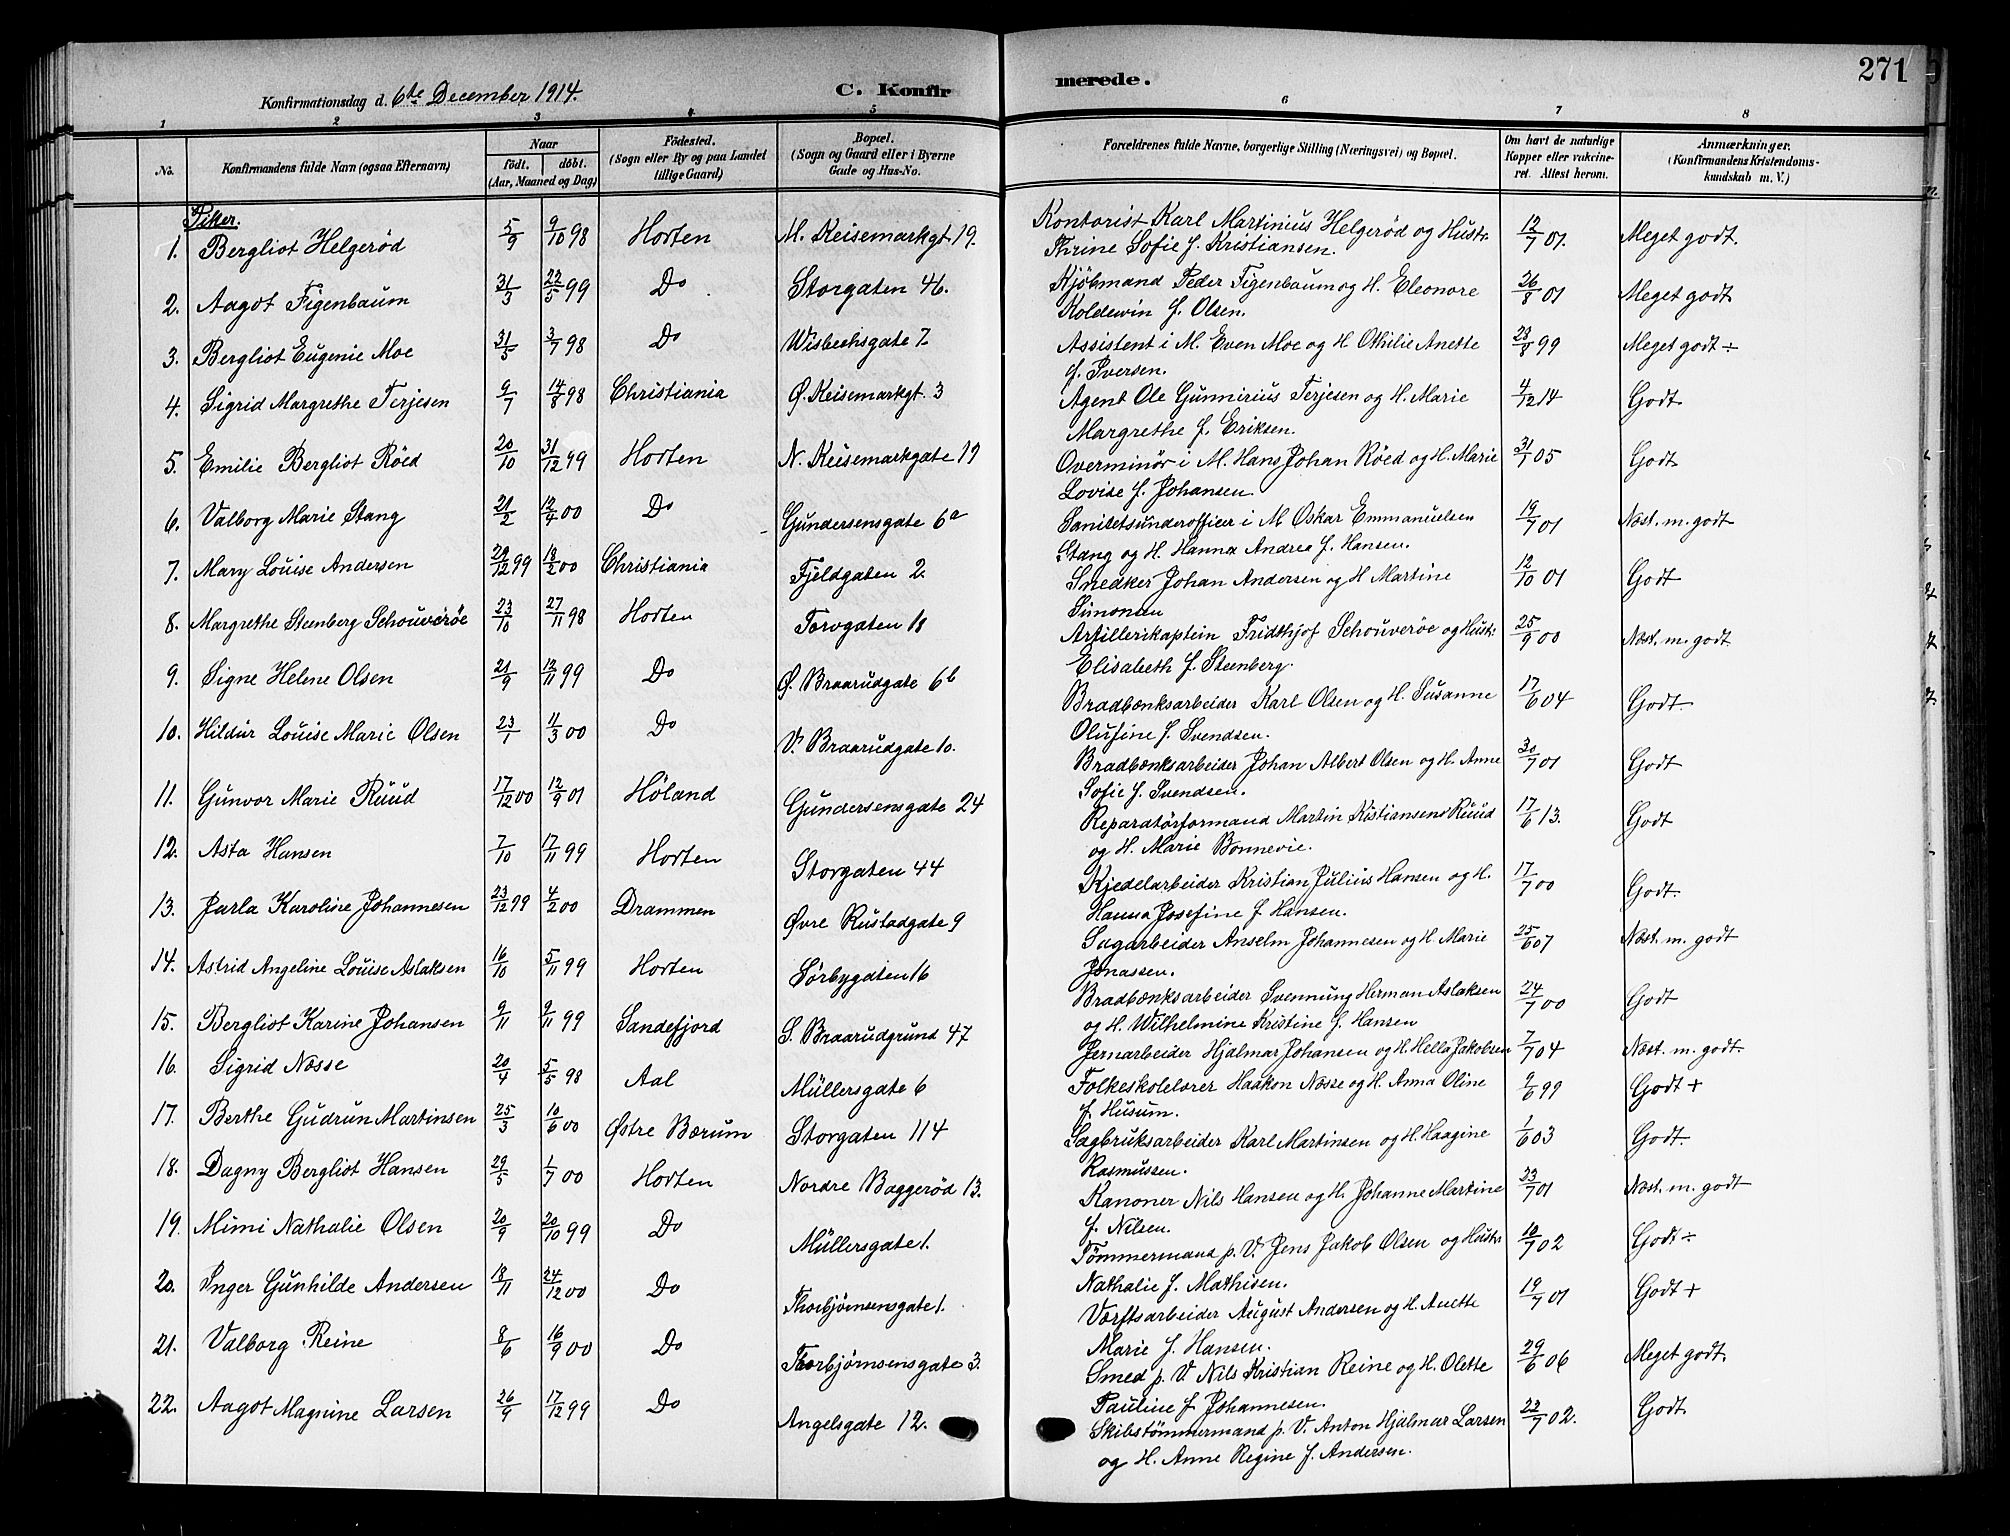 271
Konfirmationsdag d. 6te December 1914.
C. Konfirmerede.
1 2 3 4 5 6 7 8
No.
Konfirmandens fulde Navn (ogsaa Efternavn)
Naar
födt. döbt.
(Aar, Maaned og Dag)
Födested.
(Sogn eller By og paa Landet
tillige Gaard)
Bopæl.
(Sogn og Gaard eller i Byerne
Gade og Hus-No.
Forældrenes fulde Navne, borgerlige Stilling (Næringsvei) og Bopæl.
Om havt de naturlige
Kopper eller vakcine-
ret. Attest herom.
Anmærkninger.
(Konfirmandens Kristendoms-
kundskab m. V.)
Piker.
1. Bergliot Helgerød 5/9 9/10 98 Horten N. Keisemarkgt. 19. Kontorist Karl Martinius Helgerød og Hustr. 12/7 01. Meget godt.
Thrine Sofie f. Kristiansen.
2. Aagot Figenbaum 31/3 22/5 99 Do Storgaten 46. Kjöbmand Peder Figenbaum og H. Eleonore 26/8 01 Meget godt
Koldewin f. Olsen.
3. Bergliot Eugenie Moe 31/5 3/7 98 Do Wisbechsgate 7 Assistent i M. Even Moe og H. Othilie Anette 23/8 99 Meget godt ÷
f. Iversen.
4. Sigrid Margrethe Terjesen 9/7 14/8 98 Christiania Ø. Keisemarkgt. 3 Agent Ole Gunnirius Terjesen og H. Marie 4/12 14 Godt
Margrethe f. Eriksen.
5. Emilie Bergliot Röed 20/10 31/12 99 Horten N. Keisemarkgate 19 Overminör i M. Hans Johan Röed og H. Marie 31/1 05 Godt
Lovise f. Johansen.
6. Valborg Marie Stang 21/2 12/4 00 Do Gundersensgate 6a Sanitetsunderofficer i M Oskar Emmanuelsen 19/7 01 Næst. m. godt
Stang og H. Hanna Andrea f. Hansen.
7. Mary Louise Andersen 29/12 99 18/2 00 Christiania Fjeldgaten 2. Snedker Johan Andersen og H Martine 12/10 01 Godt
Simonsen
8. Margrethe Steenberg Schouveröe 23/10 27/11 98 Horten Torvgaten 18 Artillerikaptein Fridthjof Schouveröe og Hust: 25/9 00 Næst. m. godt
Elisabeth f. Steenberg.
9. Signe Helene Olsen 21/9 12/11 99 Do Ø. Braarudgate 6b Bradbænksarbeider Karl Olsen og H. Susanne 17/6 04 Godt.
Olufine f. Svendsen.
10. Hildur Louise Marie Olsen 23/1 11/3 00 Do V. Braarudgate 10. Bradbænksarbeider Johan Albert Olsen og H. Anne 30/7 01 Godt
Sofie f. Svendsen.
11. Gunvor Marie Ruud 17/12 00 12/9 01 Høland Gundersensgate 24 Reparatörformand Martin Kristiansens Ruud 17/6 13. Godt
og H. Marie Bonnevie.
12. Asta Hansen 7/10 17/11 99 Horten Storgaten 44 Kjedelarbeider Kristian Julius Hansen og H. 17/7 00 Godt.
Hanna Josefine f Hansen.
13. Jarla Karoline Johannesen 23/12 99 4/2 00 Drammen Øvre Rustadgate 9 Sagarbeider Anselm Johannesen og H. Marie 25/6 07 Næst. m. godt
Jonassen.
14. Astrid Angeline Louise Aslaksen 16/10 5/11 99 Horten Sörbygaten 16 Bradbænksarbeider Svennung Herman Aslaksen 24/7 00 Godt
og H. Wilhelmine Kristine f. Hansen
15. Bergliot Karine Johansen 9/11 9/11 99 Sandefjord S. Braarudgrund 47 Jernarbeider Hjalmar Johansen og H. Hella Jakobsen 7/7 04 Næst. m. godt.
16. Sigrid Næsse 20/4 5/5 98 Aal Müllersgate 6 Folkeskolelærer Haakon Næsse og H. Anna Oline 9/6 99 Godt +
f. Husum.
17. Berthe Gudrun Martinsen 25/3 10/6 00 Østre Bærum Storgaten 114 Sagbruksarbeider Karl Martinsen og H. Haagine 1/6 03 Godt.
Rasmussen.
18. Dagny Bergliot Hansen 29/5 1/7 00 Horten Nordre Baggerød 13. Kanoner Nils Hansen og H. Johanne Martine 23/7 01 Næst. m. godt
f. Nilsen.
19. Mimi Nathalie Olsen 20/9 20/10 99 Do Müllersgate 1. Tömmermand p. V. Jens Jakob Olsen og Hustr. 10/7 02 Godt ÷
Nathalie f. Mathisen.
20. Inger Gunhilde Andersen 18/11 24/12 00 Do Thorbjørnsensgate 1. Værftsarbeider August Andersen og H. Anette 19/7 01 Godt +
Marie f. Hansen.
21. Valborg Reine 8/6 16/9 00 Do Thorbjørnsensgate 3. Smed p. V Nils Kristian Reine og H. Olette 29/6 06 Meget godt.
Pauline f Johannesen.
22. Aagot Magnine Larsen 26/9 17/12 99 Do Angelsgate 12. Skibstömmermand p. V. Anton Hjalmar Larsen 22/7 02. Godt
og H. Anne Regine f. Andersen.